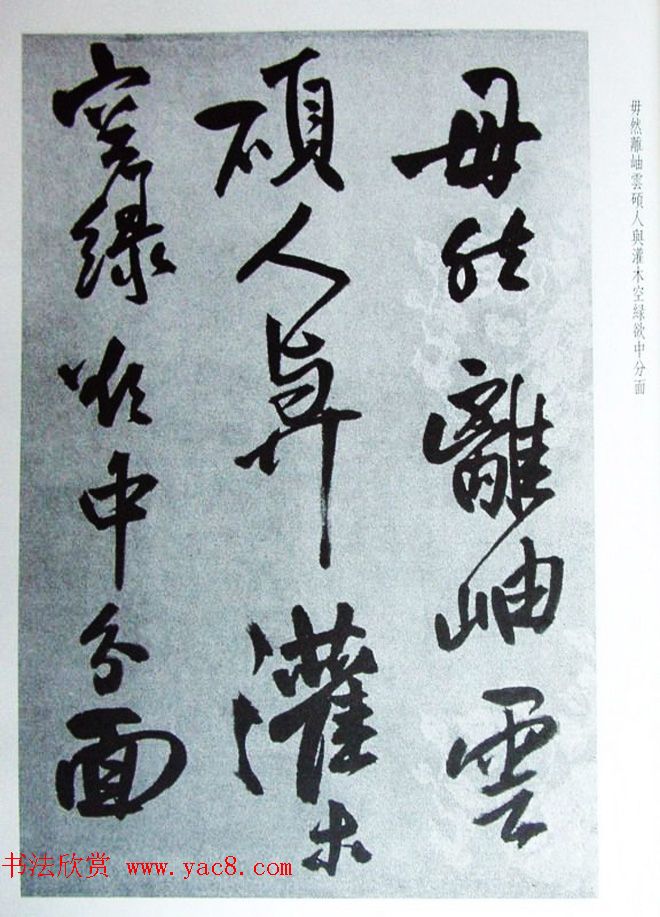 毋然離岫雲碩人與灌木空緑欲中分面
毋然離岫雲
碩人與灌木
空緑欲中分面
书法欣赏 www.yac8.com